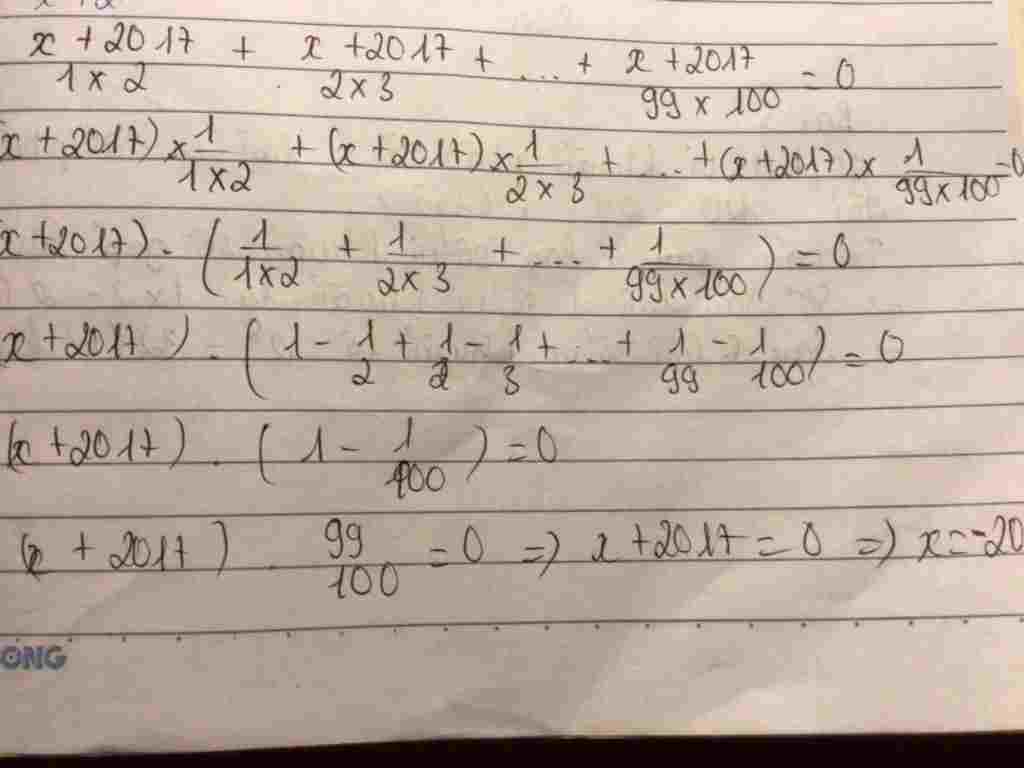 x + 2017 / 1 × 2 + x + 2017 / 2 × 3 + ... + x + 2017 / 99 × 100 = 0
x + 2017) × 1 / 1 × 2 + (x + 2017) × 1 / 2 × 3 + ... + (x + 2017) × 1 / 99 × 100 = 0
x + 2017) . ( 1 / 1 × 2 + 1 / 2 × 3 + ... + 1 / 99 × 100 ) = 0
x + 2017) . ( 1 - 1 / 2 + 1 / 2 - 1 / 3 + ... + 1 / 99 - 1 / 100 ) = 0
(x + 2017) . ( 1 - 1 / 100 ) = 0
(x + 2017) . 99 / 100 = 0 => x + 2017 = 0 => x = -20
ONG